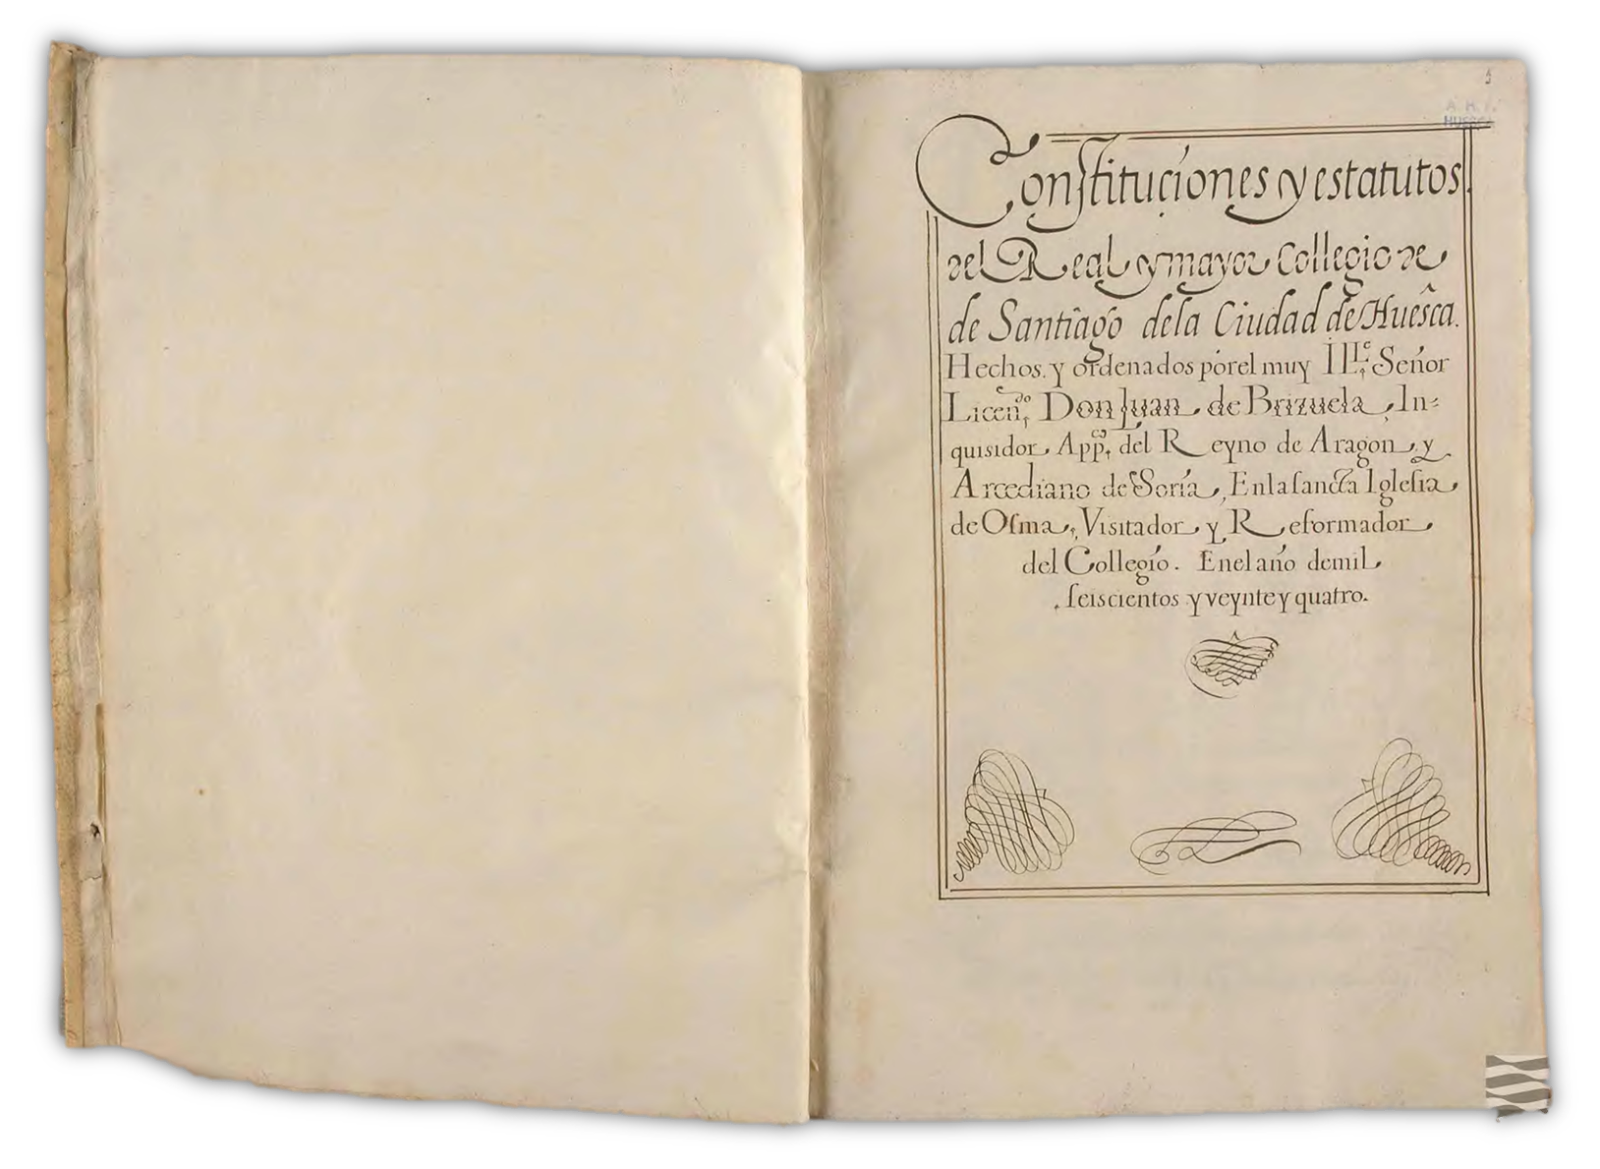 A. H. P.
HUESCA
Constituçiones y estatutos
del Real y mayor Collegio de
de Santiago dela Ciudad de Huesca.
Hechos. y ordenados por el muy Ill.e Señor
Licen.do Don Juan de Brizuela, In=
quisidor App.co del Reyno de Aragon y
Arcediano de Soria, En la sancta Iglesia
de Osma, Visitador y Reformador
del Collegio. En el año de mil
seiscientos y veynte y quatro.